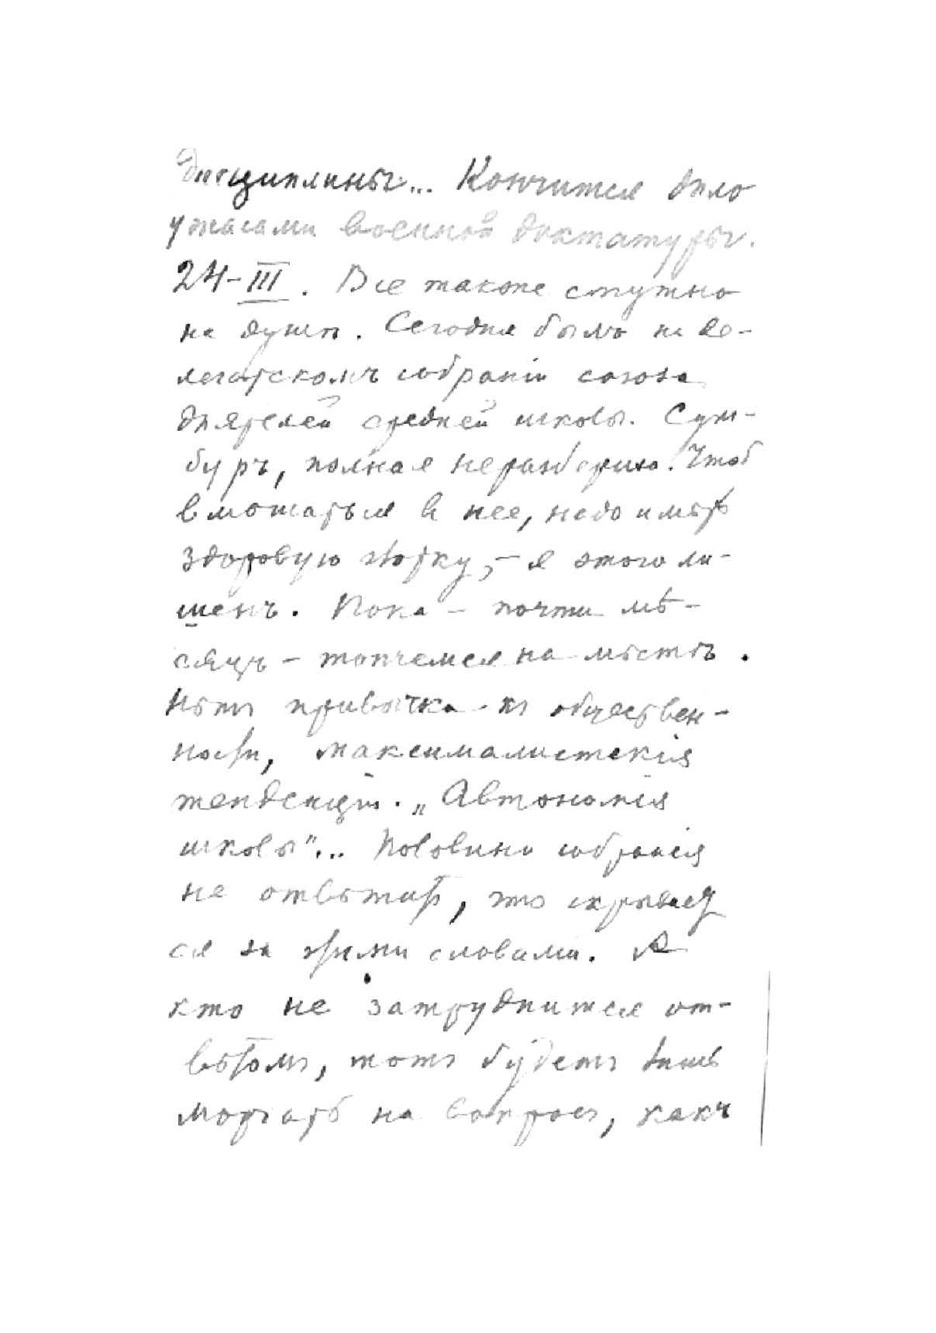 дисциплины... Кончится дѣло
ужасами военной диктатуры.
24-III. Все такоже смутно
на душѣ. Сегодня былъ на де-
легатскомъ собранiи союза
дѣятелей средней школы. Сум-
буръ, полная неразбериха. Чтоб
вмотаться в нее, надо имѣть
здоровую глотку, – я этого ли-
шенъ. Пока – почти мѣ-
сяцъ – топчемся на мѣстѣ.
Нѣтъ привычка къ обществен-
ности, максималистскiя
тенденцiи. „Автономiя
школы"... Половина собранiя
не отвѣтитъ, что скрывает
ся за этими словами. А
кто не затруднится от-
вѣтомъ, тотъ будетъ лишь
моргать на вопросъ, какъ